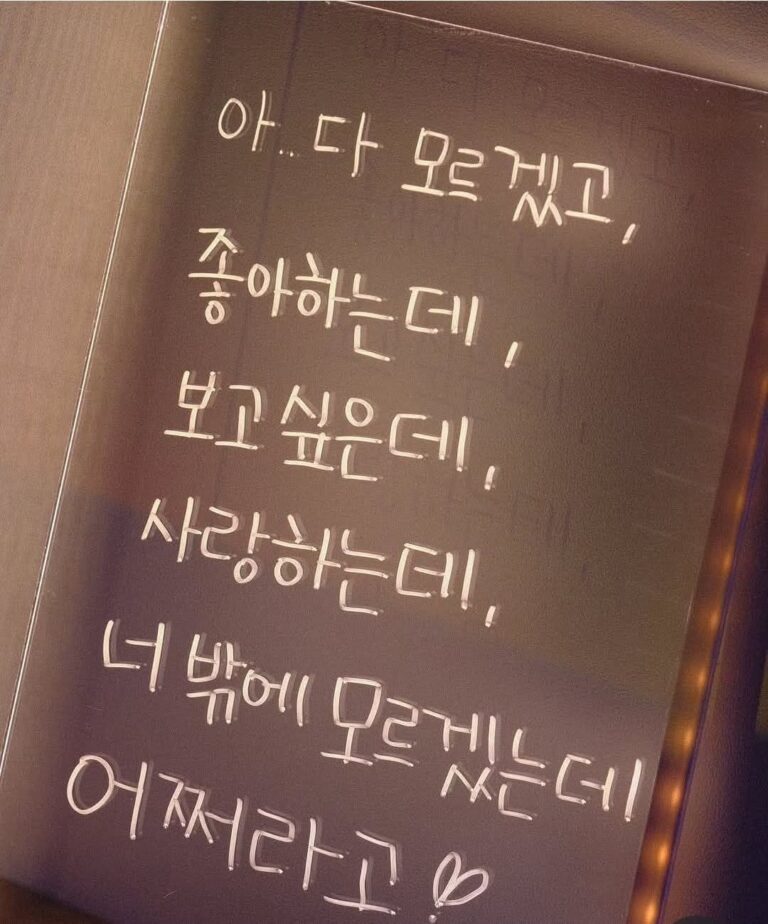 아... 다 모르겠고,
좋아하는데,
보고싶은데,
사랑하는데,
너 밖에 모르겠는데
어쩌라고♡